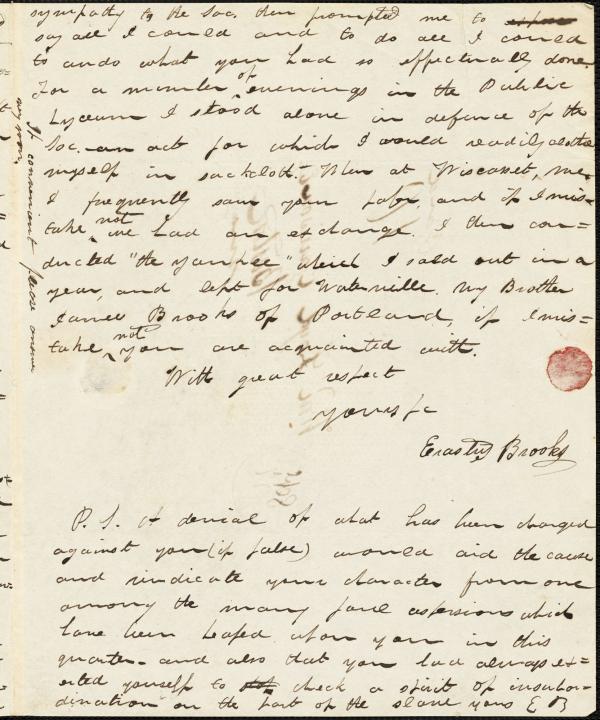 sympathy to the Soc. then prompted me to
say all I could and to do all I could
to undo what you had so effectually done.
For a number of evenings in the Public
Lyceum I stood alone in defence of the
Soc. an act for which I would readily clothe
myself in sackcloth. When at Wiscasset, Me.
I frequently saw your paper and if I mis=
take not we had an exchange. I then con=
ducted "the Yankee" which I sold out in a
year, and left for Waterville. My Brother
James Brooks of Portland, if I mis=
take not you are acquainted with.
With great respect
yours &c
Erastus Brooks
P. S. A denial of what has been charged
against you (if false) would aid the cause
and vindicate your character from one
among the many foul aspersions which
have been heaped upon you in this
quarter - and also that you had always ex=
erted yourself to check a spirit of insubor=
dination on the part of the slave yours E B
If convenient please answer
my